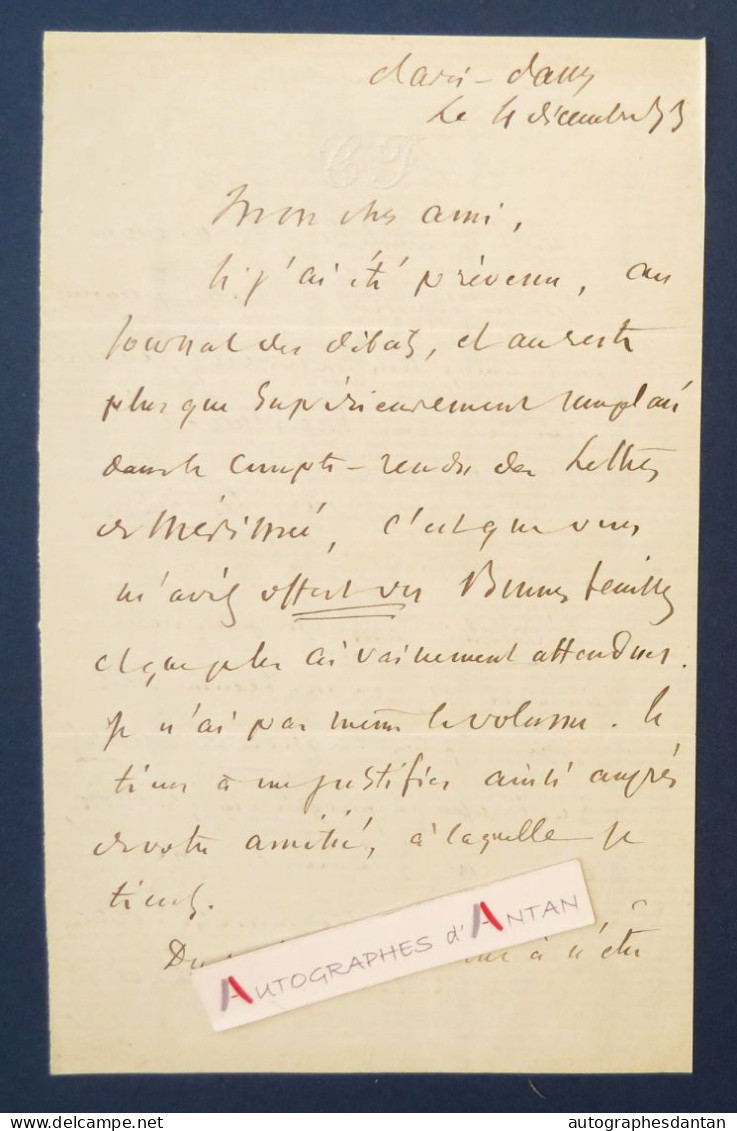 Le 4 décembre 73
CT
Mon cher ami,
Si j'ai été prévenu, au
Journal des débats, et au reste
plus que supérieurement remplacé
dans le compte-rendu des Lettres
de Mérimée, c'est que vous
m'aviez offert vos Bonnes feuilles
et que je les ai vainement attendues.
Je n'ai pas même le volume. Je
tiens à me justifier ainsi auprès
de votre amitié, à laquelle je
tiens.
à n'être
AUTOGRAPHES d'ANTAN
autographesdantan